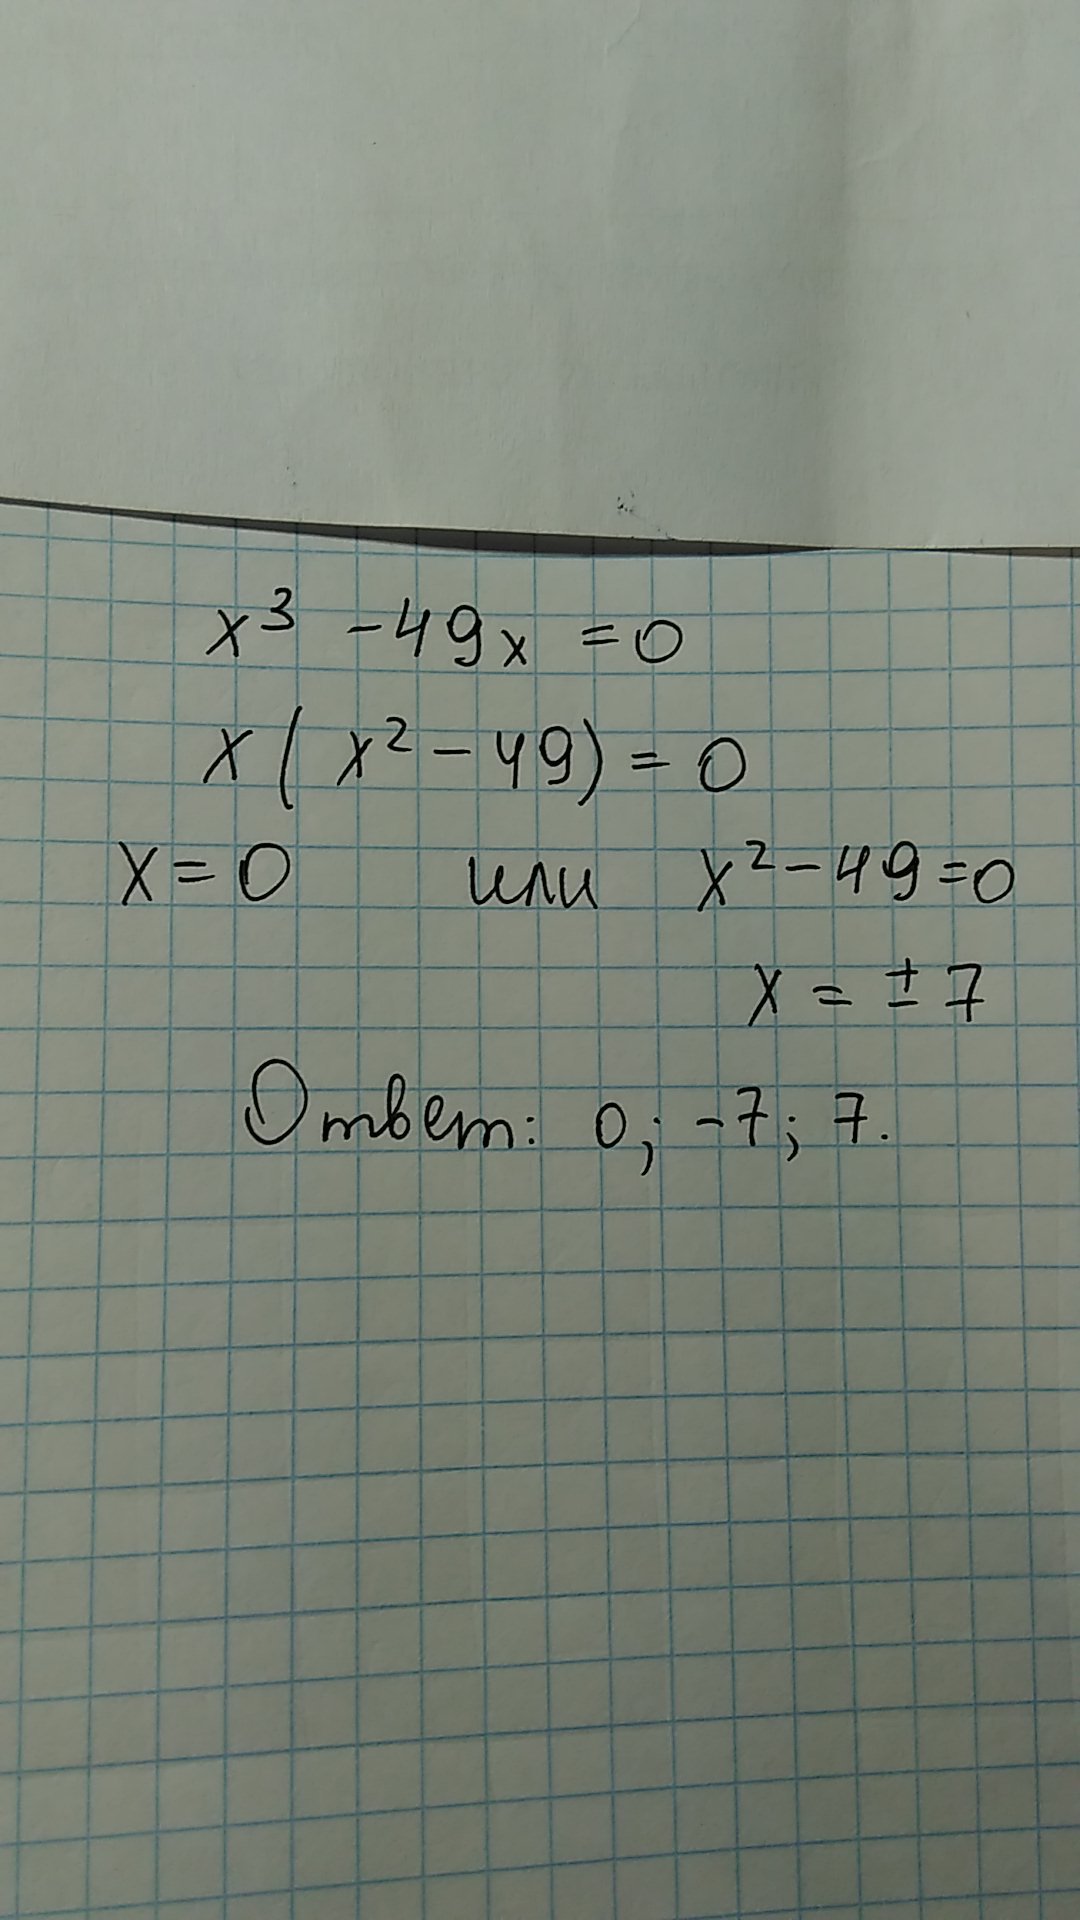 x³ - 49x = 0
x(x² - 49) = 0
x = 0 или x² - 49 = 0
x = ± 7
Ответ: 0; -7; 7.